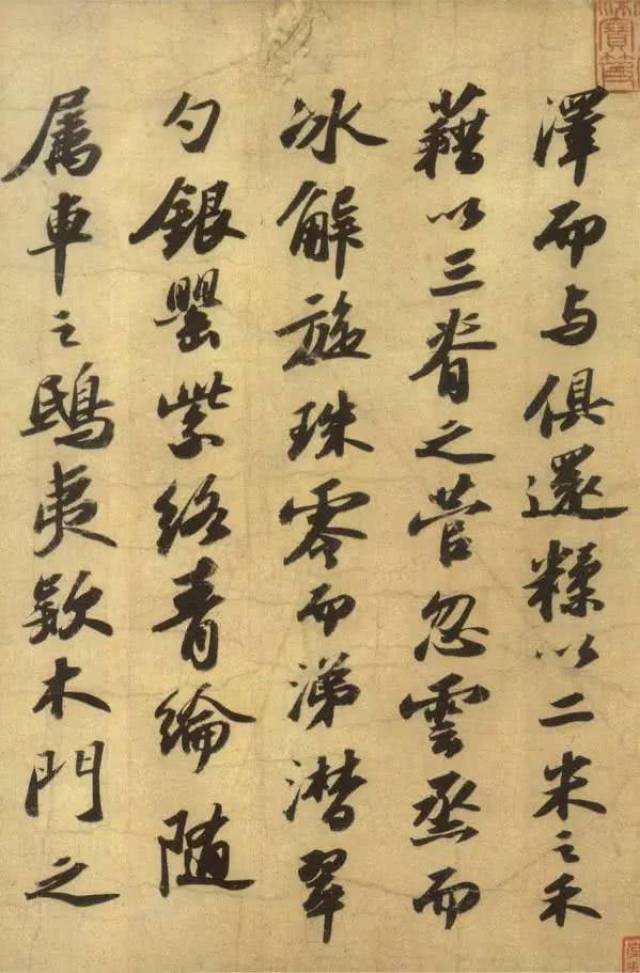 澤而与俱還糅以二米之禾
藉以三脊之菅忽雲烝而
冰解旋珠零而涕潜翠
勺銀罌紫絡青綸随
属車之鴟夷款木門之